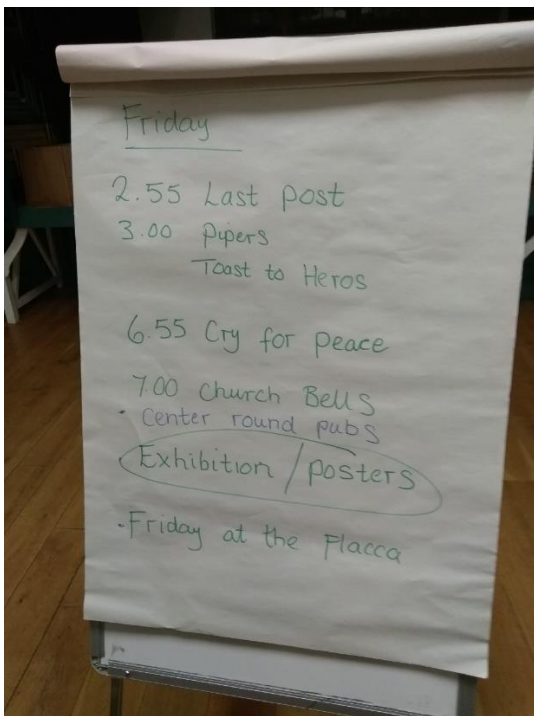 Friday
2.55 Last post
3.00 Pipers
Toast to Heros
6.55 Cry for peace
7.00 Church Bells
• Center round pubs
Exhibition / posters
• Friday at the Flacca